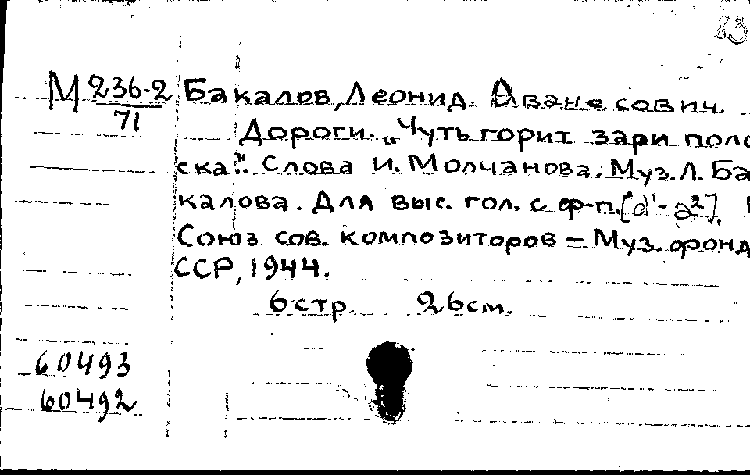 23
М 236-2 Бакалов, Леонид Аванесович.
71
Дороги. „Чуть горит зари поло
ска". Слова И. Молчанова. Муз. Л. Ба
калова. Для выс. гол. с ф-п. [d'-a²].
Союз сов. композиторов – Муз. фонд
ССР, 1944.
6 стр. 26 см.
60493
60492